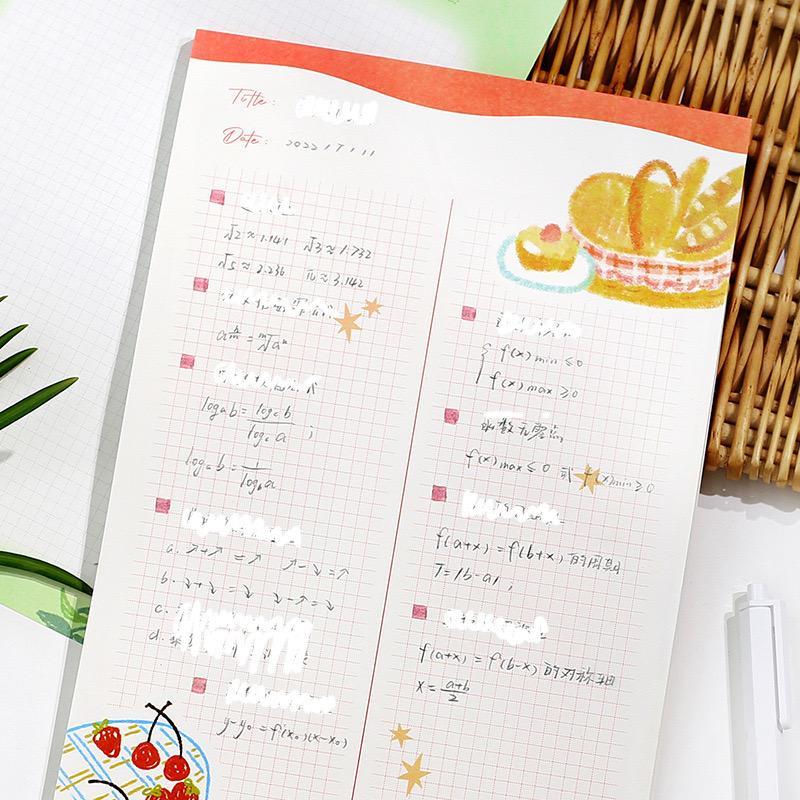 Title:
Date: 2022/7/11
√2≈1.141 √3≈1.732
√5≈2.236 π≈3.142
a^(n/m) = ᵐ√aⁿ
log_a b = log_c b / log_c a ;
log_a b = 1 / log_b a
a. ↗+↗ =↗ ↗-↘ =↗
b. ↘+↘ =↘ ↘-↗=↘
c.
d.
y-y₀ = f'(x₀)(x-x₀)
{ f(x)min ≤0
f(x)max ≥0
函数无零点
f(x)max ≤0 或 f(x)min ≥0
f(a+x) = f(b+x) 的周期
T=|b-a| ;
f(a+x) = f(b-x) 的对称轴
x = (a+b)/2